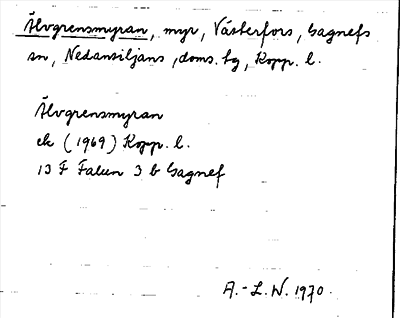 Älvgrensmyran, myr, Västerfors, Gagnefs
sn, Nedansiljans, doms. bg, Kopp. l.
Älvgrensmyran
ek (1969) Kopp. l.
13 F Falun 3 b Gagnef
A.-L. W. 1970.